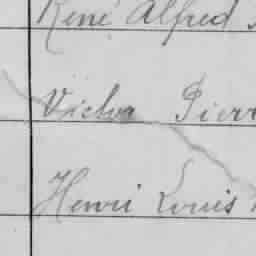 René Alfred
Victor Pierr
Henri Louis